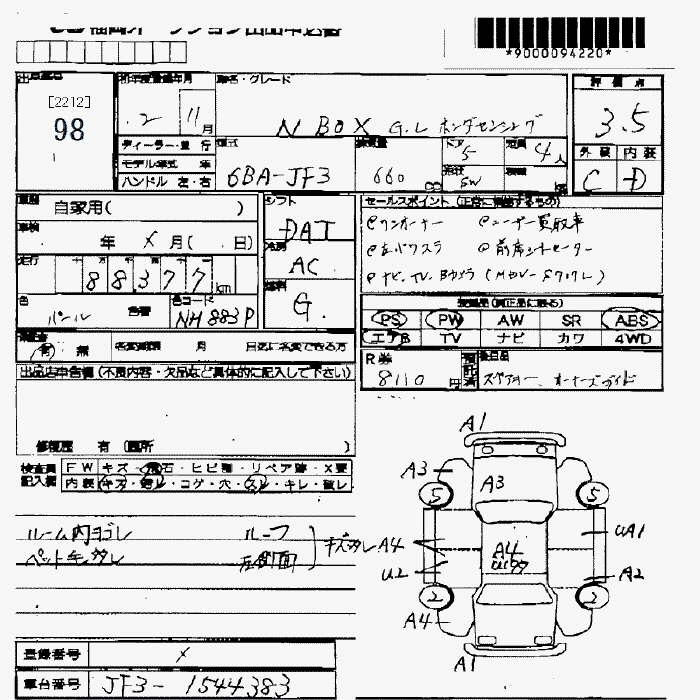 *9000094220*
[2212]
98
初年度登録年月
車名・グレード
評価点
2 11月
N BOX G.L ホンダセンシング
3.5
ディーラー・並行
型式
排気量
ドア
定員
モデル年式 年
ハンドル 左・右
6BA-JF3
660 cc
5
5W
4人
外装 内装
C D
車歴
自家用( )
シフト
DAT
セールスポイント
車検
年 X月( 日)
冷房
AC
@ワンオーナー @ユーザー買取車
@左パワスラ @前席シートヒーター
走行
88377km
燃料
G.
色
パール
色替
色コード
NH883P
PS PW AW SR ABS
エアB TV ナビ カワ 4WD
有 無
名変期限 月 日迄に名変できる方
R券
8110円
後日品
スペアキー、オーナーズガイド
出品店申告欄(不良内容・欠品など具体的に記入して下さい)
修復歴 有 (箇所 )
検査員記入欄
FW キズ・飛石・ヒビ種・リペア跡・X要
内装 キズ・汚レ・コゲ・穴・スレ・キレ・破レ
ルーム内ヨゴレ
ルーフ
左側面
キズ
A1
A3
A3
5
5
A4
A4
U2
UA1
A2
2
2
A4
A1
登録番号 X
車台番号 JF3-1544383